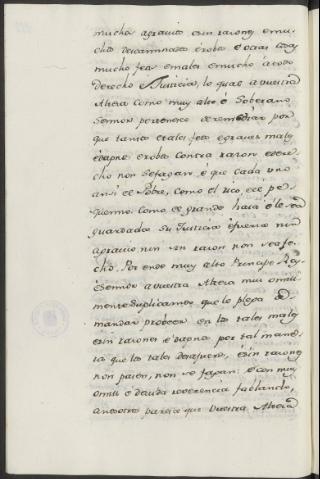 muchos agravios è sin razones è mu-
chos descaminados è robos è otras cosas
mucho feas è malas è mucho à todo
derecho è Justicia, lo qual a vuestra
Alteza como muy alto è Soberano
Sennor pertenesce de remediar por
que tantos è tales feos agravios males
è dapnos è robos contra razon è dere-
cho non se fagan, è que cada uno
ansi el Pobre, como el rico, è el pe-
quenno como el grande haia è le sea
guardado su Justicia è fuero è nin
agravio nin sin razon non sea fe-
cho. Por ende muy alto Principe Rey
è Sennor a vuestra Alteza mui omill
mente suplicamos que le plega de
mandar probeer en los tales males
sin razones è dapnos por tal mane-
ra que los tales desafueros, è sin razones
non pasen, non se fagan: è con muy
omill è devida reverencia fablando,
a nosotros paresce que vuestra Alteza